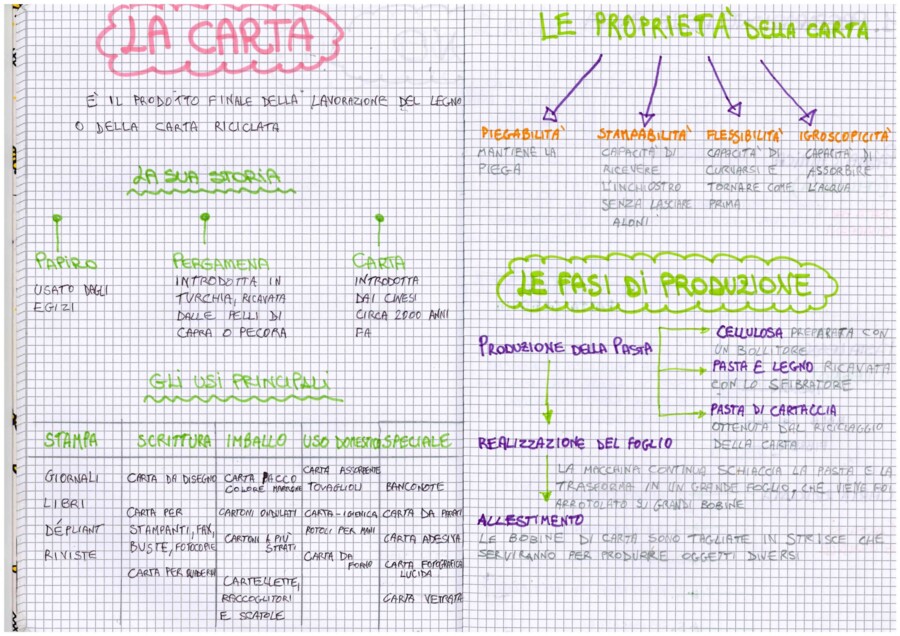 LA CARTA
E' IL PRODOTTO FINALE DELLA LAVORAZIONE DEL LEGNO
O DELLA CARTA RICICLATA
LA SUA STORIA
PAPIRO
USATO DAGLI
EGIZI
PERGAMENA
INTRODOTTA IN
TURCHIA, RICAVATA
DALLE PELLI DI
CAPRA O PECORA
CARTA
INTRODOTTA
DAI CINESI
CIRCA 2000 ANNI
FA
GLI USI PRINCIPALI
STAMPA
GIORNALI
LIBRI
DÉPLIANT
RIVISTE
SCRITTURA
CARTA DA DISEGNO
CARTA PER
STAMPANTI, FAX,
BUSTE, FOTOCOPIE
CARTA PER QUADERNI
IMBALLO
CARTA PACCO
COLORE MARRONE
CARTONI ONDULATI
CARTONI A PIÙ
STRATI
CARTELLETTE,
RACCOGLITORI
E SCATOLE
USO DOMESTICO
CARTA ASSORBENTE
TOVAGLIOLI
CARTA-IGIENICA
ROTOLI PER MANI
CARTA DA
FORNO
SPECIALE
BANCONOTE
CARTA DA PARATI
CARTA ADESIVA
CARTA FOTOGRAFICA
LUCIDA
CARTA VETRATA
LE PROPRIETA' DELLA CARTA
PIEGABILITA'
MANTIENE LA
PIEGA
STAMPABILITA'
CAPACITA' DI
RICEVERE
L'INCHIOSTRO
SENZA LASCIARE
ALONI
FLESSIBILITA'
CAPACITA' DI
CURVARSI E
TORNARE COME
PRIMA
IGROSCOPICITA'
CAPACITA' DI
ASSORBIRE
L'ACQUA
LE FASI DI PRODUZIONE
PRODUZIONE DELLA PASTA
CELLULOSA PREPARATA CON
UN BOLLITORE
PASTA E LEGNO RICAVATA
CON LO SFIBRATORE
PASTA DI CARTACCIA
OTTENUTA DAL RICICLAGGIO
DELLA CARTA
REALIZZAZIONE DEL FOGLIO
LA MACCHINA CONTINUA SCHIACCIA LA PASTA E LA
TRASFORMA IN UN GRANDE FOGLIO, CHE VIENE POI
ARROTOLATO SU GRANDI BOBINE
ALLESTIMENTO
LE BOBINE DI CARTA SONO TAGLIATE IN STRISCE CHE
SERVIRANNO PER PRODURRE OGGETTI DIVERSI